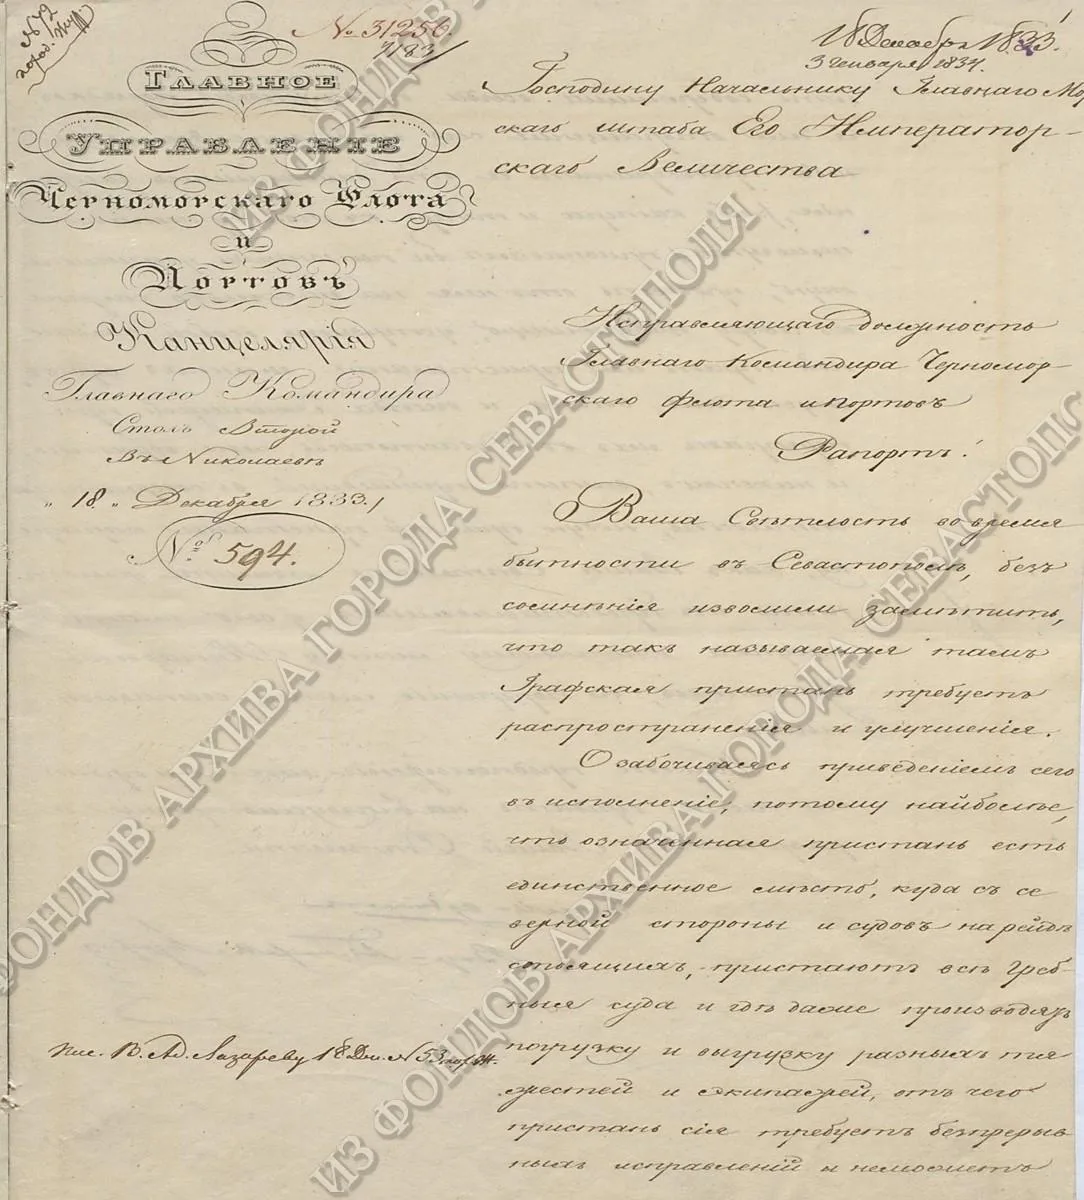 № 72
№ 31256.
7183/
18 Декабря 1833.
3 Генваря 1834.
Главное
Управленіе
Черноморскаго Флота
и
Портовъ
Канцелярія
Главнаго Командира
Столъ Второй
Въ Николаевѣ
„ 18 „ Декабря 1833./
№ 594.
Господину Начальнику Главнаго Мор
скаго штаба Его Император-
скаго Величества
Исправляющаго должность
Главнаго Командира Черномор-
скаго флота и портовъ
Рапортъ!
Ваша Свѣтлость во время
бытности въ Севастополѣ, безъ
сомнѣнія изволили замѣтить,
что такъ называемая тамъ
Графская пристань требуетъ
распространенія и улучшенія.
Озабочиваясь приведеніемъ сего
въ исполненіе, потому наиболѣе,
что означенная пристань есть
единственное мѣсто, куда съ се
верной стороны и судовъ на рейдѣ
стоящихъ, пристаютъ всѣ греб-
ныя суда и гдѣ даже производятъ
погрузку и выгрузку разныхъ тя
жестей и экипажей, отъ чего
пристань сія требуетъ безпрерыв
ныхъ исправленій и неможетъ
пис. В. Ад. Лазареву 18 № 53
ИЗ ФОНДОВ АРХИВА ГОРОДА СЕВАСТОПОЛЯ